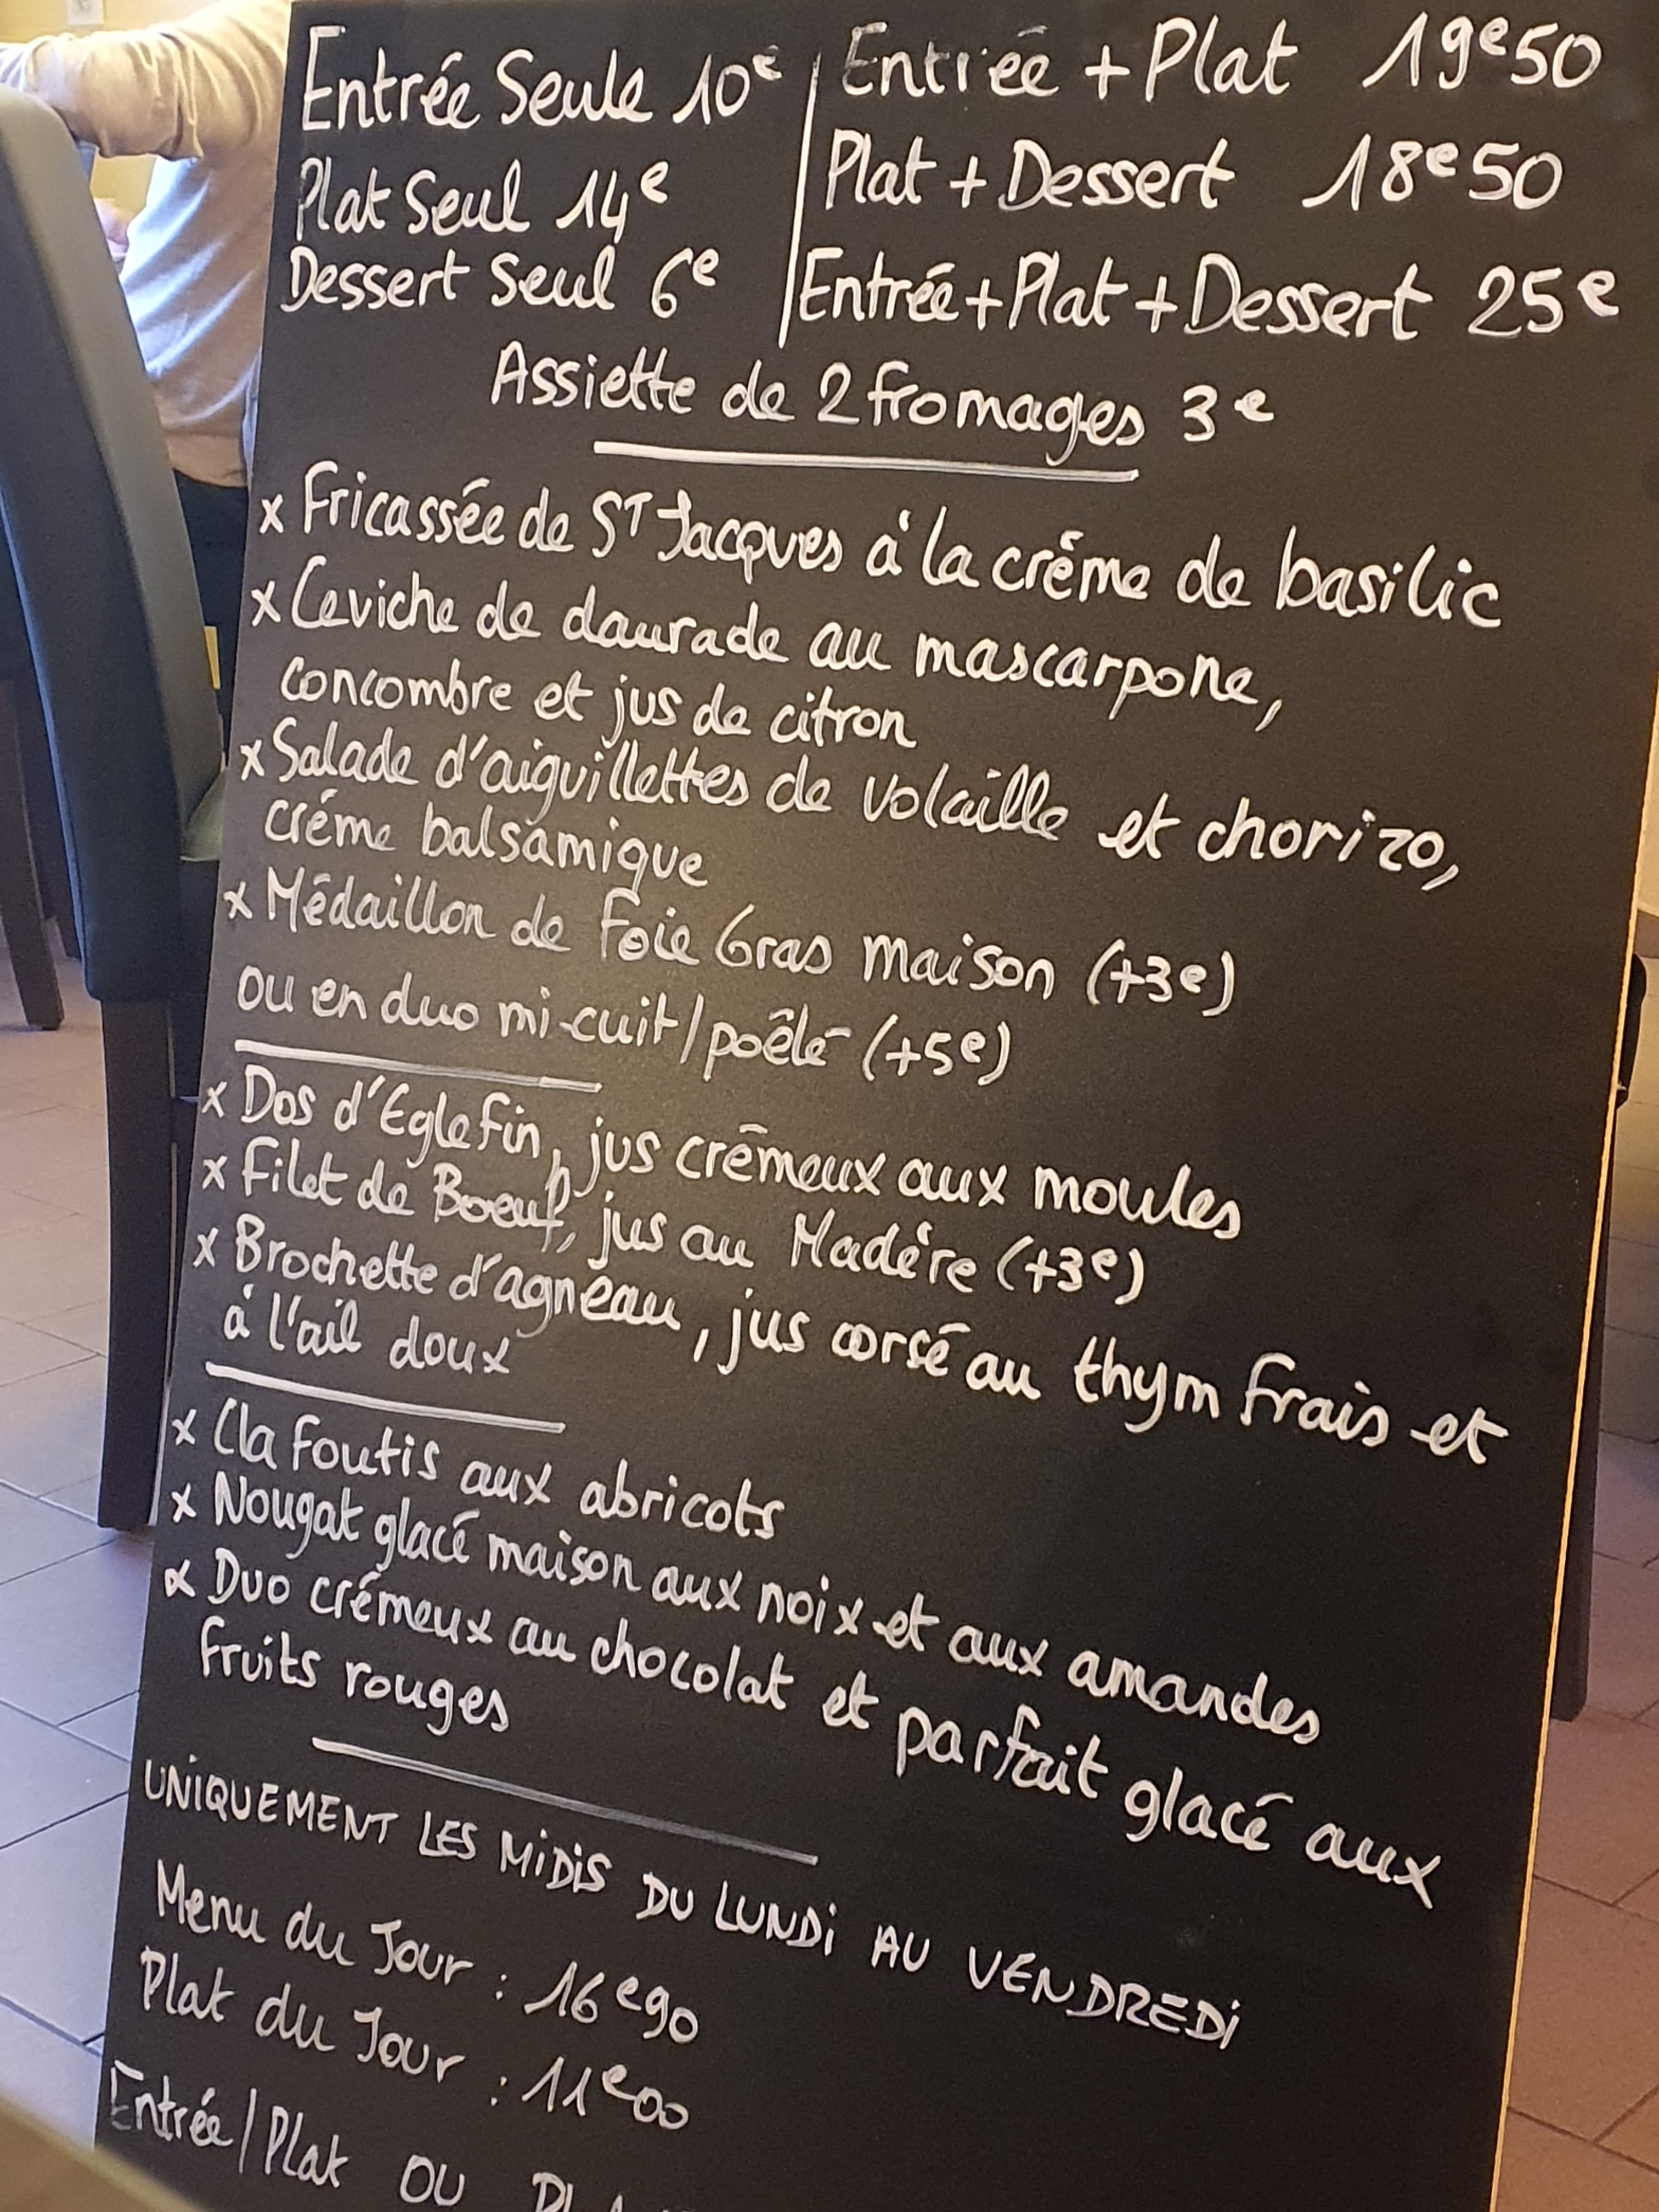 Entrée Seule 10e
Plat Seul 14e
Dessert Seul 6e
Entrée + Plat 19e50
Plat + Dessert 18e50
Entrée + Plat + Dessert 25e
Assiette de 2 fromages 3e
x Fricassée de ST Jacques à la crème de basilic
x Ceviche de daurade au mascarpone,
concombre et jus de citron
x Salade d'aiguillettes de volaille et chorizo,
crème balsamique
x Médaillon de Foie Gras maison (+3e)
ou en duo mi-cuit/poêlé (+5e)
x Dos d'Eglefin, jus crémeux aux moules
x Filet de Boeuf, jus au Madère (+3e)
x Brochette d'agneau, jus corsé au thym frais et
à l'ail doux
x Clafoutis aux abricots
x Nougat glacé maison aux noix et aux amandes
x Duo crémeux au chocolat et parfait glacé aux
fruits rouges
UNIQUEMENT LES MIDIS DU LUNDI AU VENDREDI
Menu du Jour : 16e90
Plat du Jour : 11e00
Entrée/Plat OU